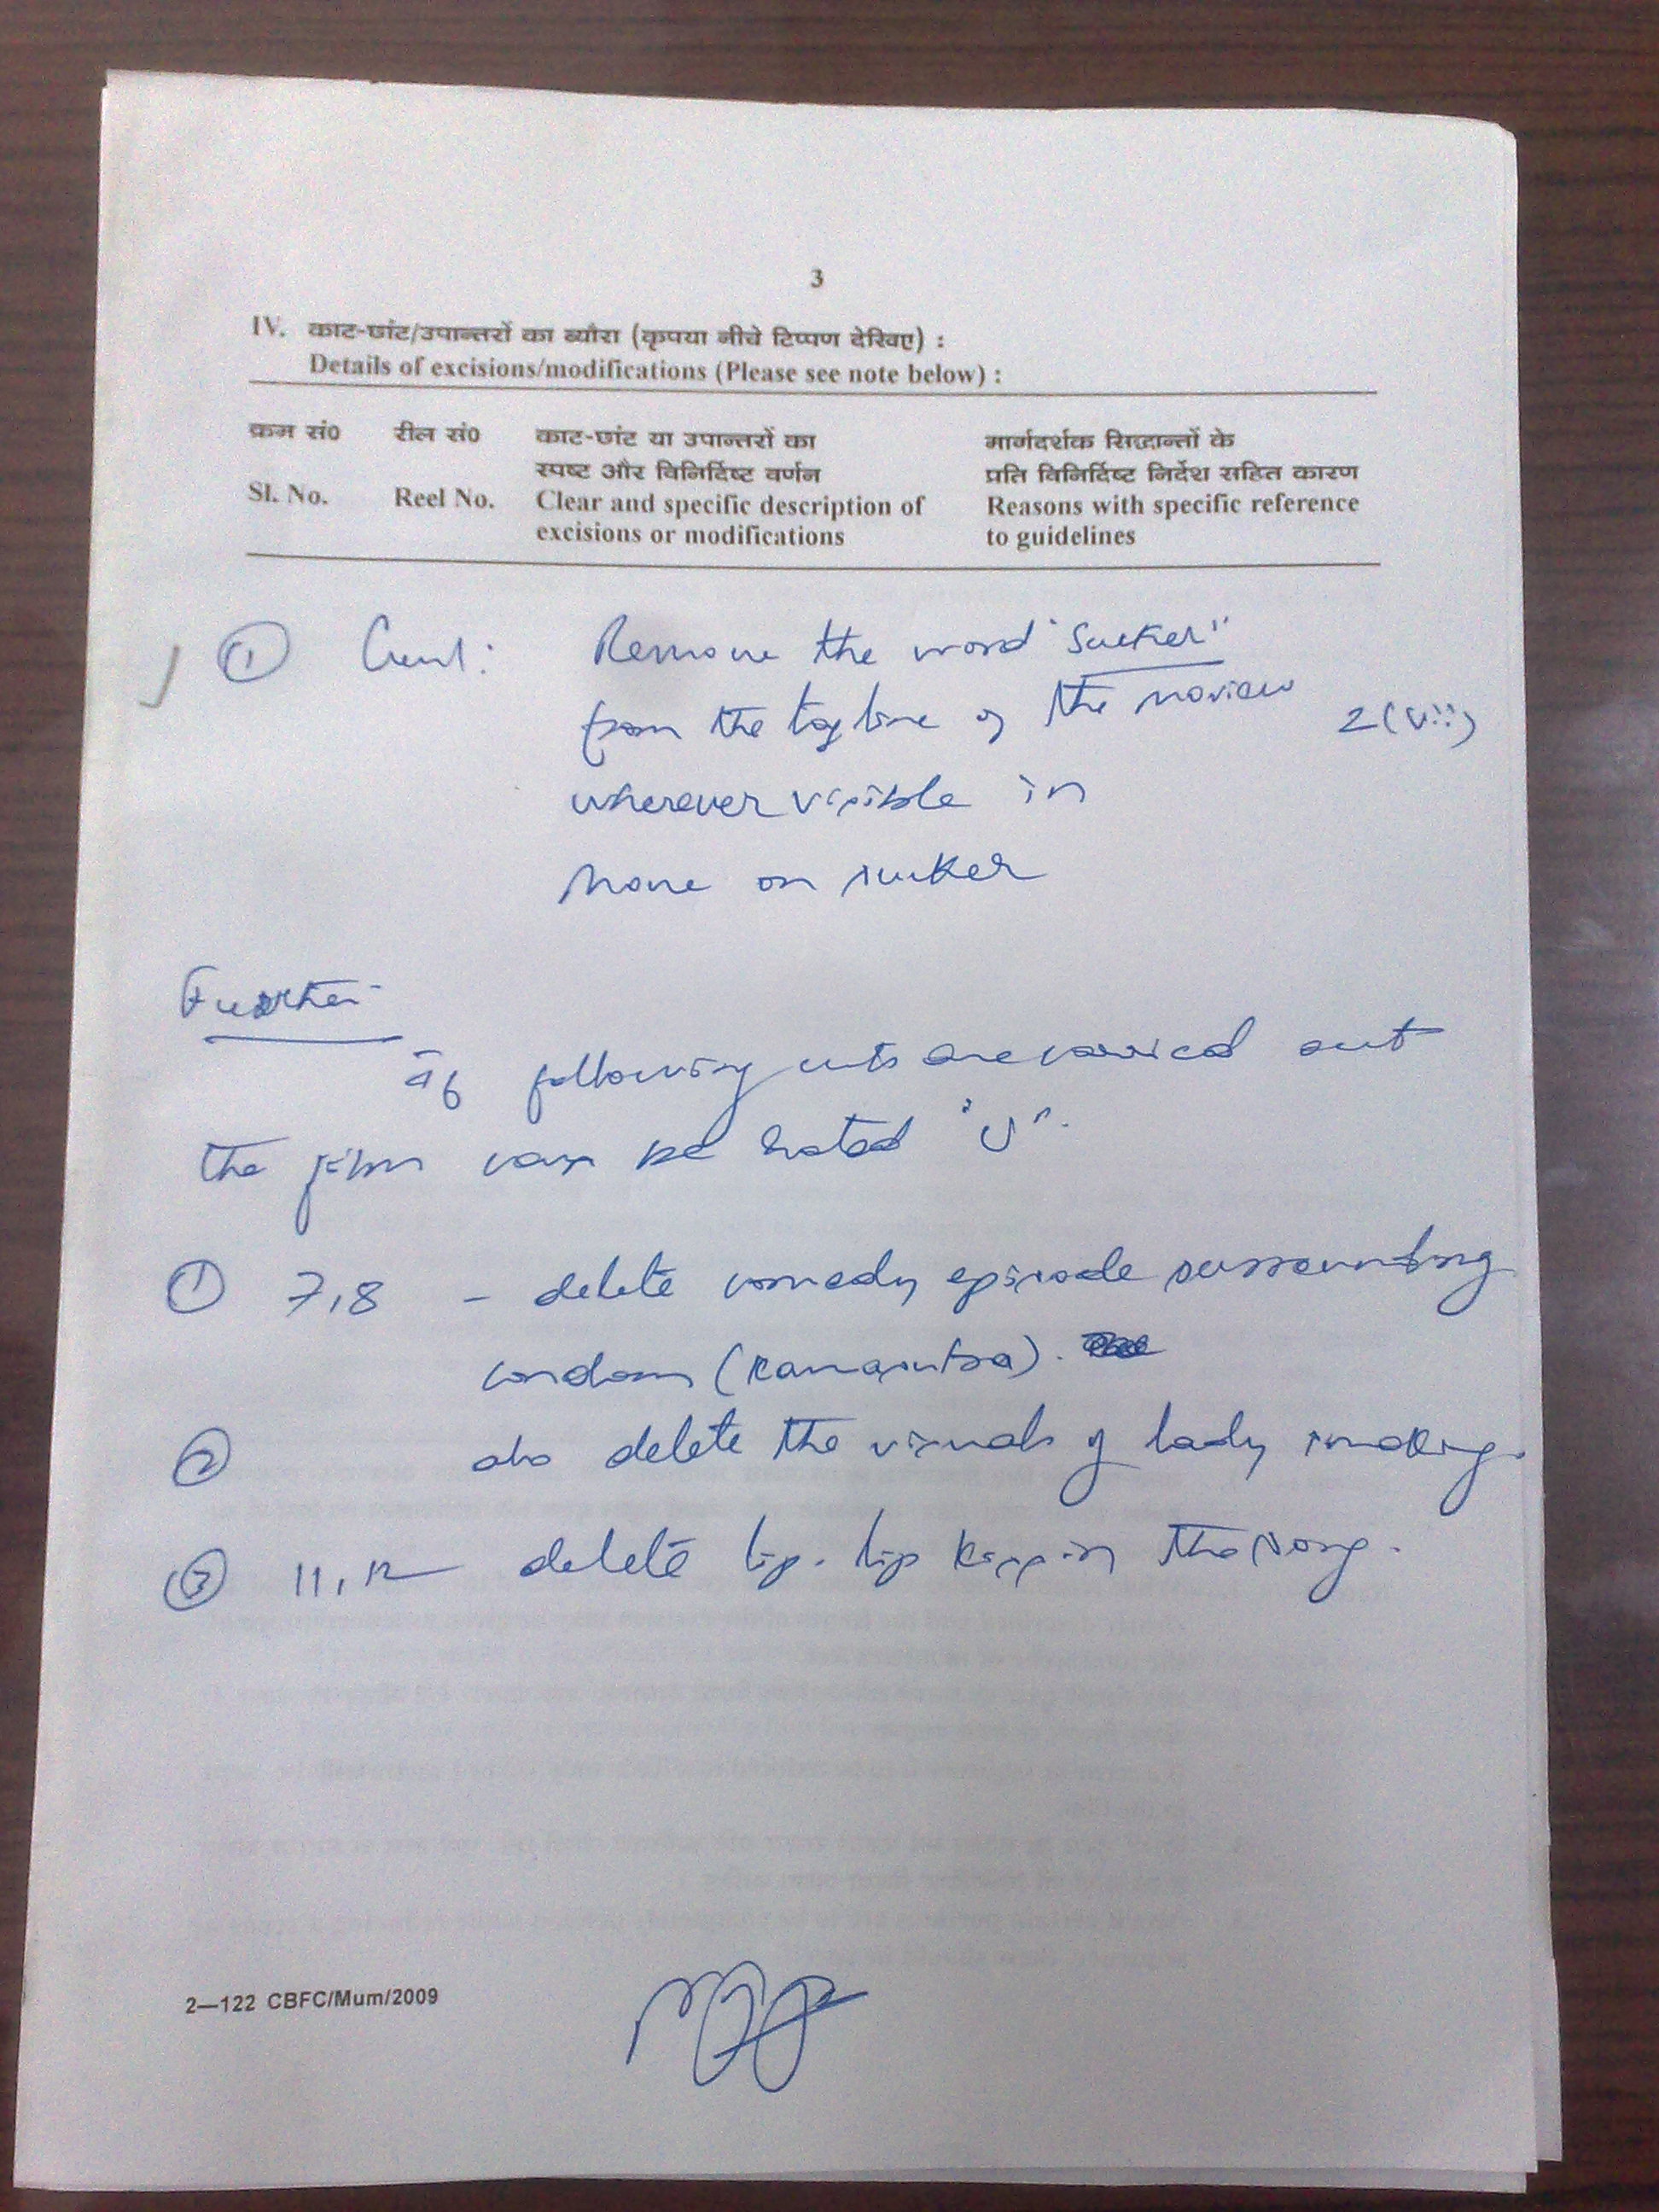 3
IV. काट-छांट/उपान्तरों का ब्यौरा (कृपया नीचे टिप्पण देखिए) :
Details of excisions/modifications (Please see note below) :
क्रम सं० रील सं० काट-छांट या उपान्तरों का मार्गदर्शक सिद्धान्तों के
स्पष्ट और विनिर्दिष्ट वर्णन प्रति विनिर्दिष्ट निर्देश सहित कारण
Sl. No. Reel No. Clear and specific description of Reasons with specific reference
excisions or modifications to guidelines
① Remove the word "Sucker"
from the tagline of the 2(vii)
wherever visible in
on sucker
Further
If following cuts are carried out
the film can be rated "U".
① 7,8 - delete comedy episode surrounding
condom (Kamasutra).
② also delete the visuals of lady smoking.
③ 11,12 delete lip-lip kiss in the song.
2—122 CBFC/Mum/2009